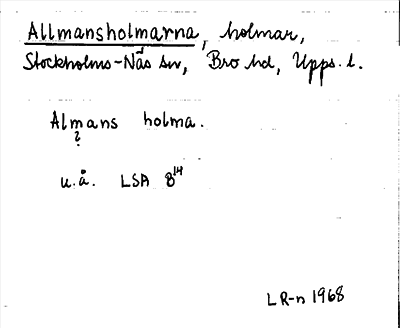 Allmansholmarna, holmar,
Stockholms-Näs sn, Bro hd, Upps. l.
Almans holma.
?
u.å. LSA 8¹⁴
LR-n 1968